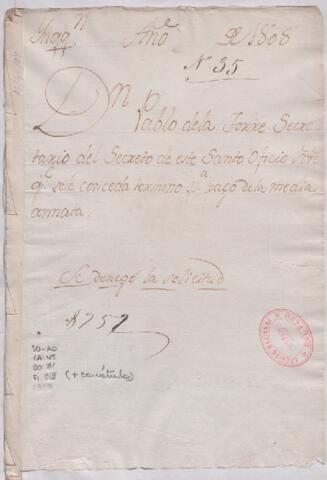 Año de 1808
Nº 35
Dn Pablo dela Torre Secre
tario del Secreto de este Santo Oficio Sbre
qe sele conceda termino pa pago dela media
annata.
Se denegó la solicitud
8757
(+ carátula)